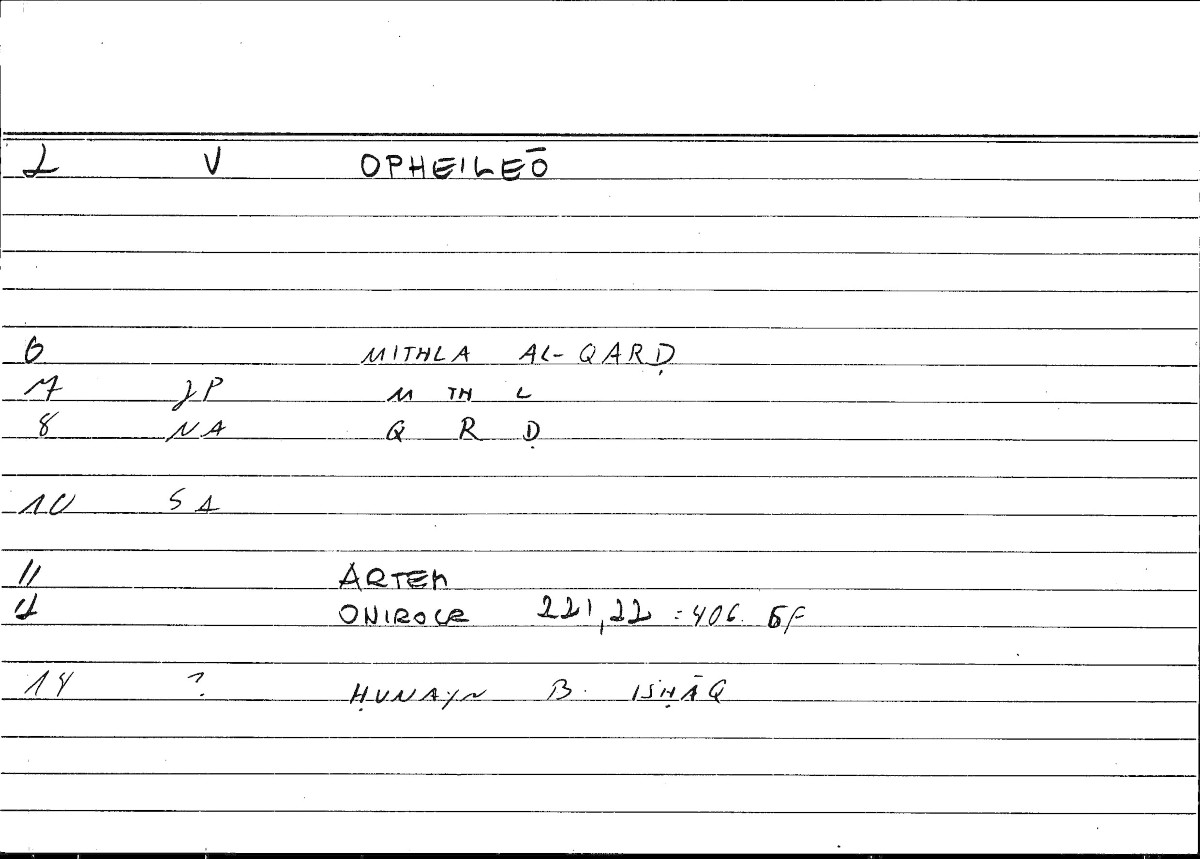 2 V OPHEILEŌ
6 MITHLA AL-QARḌ
7 JP M TH L
8 NA Q R Ḍ
10 SA
11 ARTEM
12 ONIROCR 221,22 = 406. 5F
14 ? ḤUNAYN B. ISḤĀQ